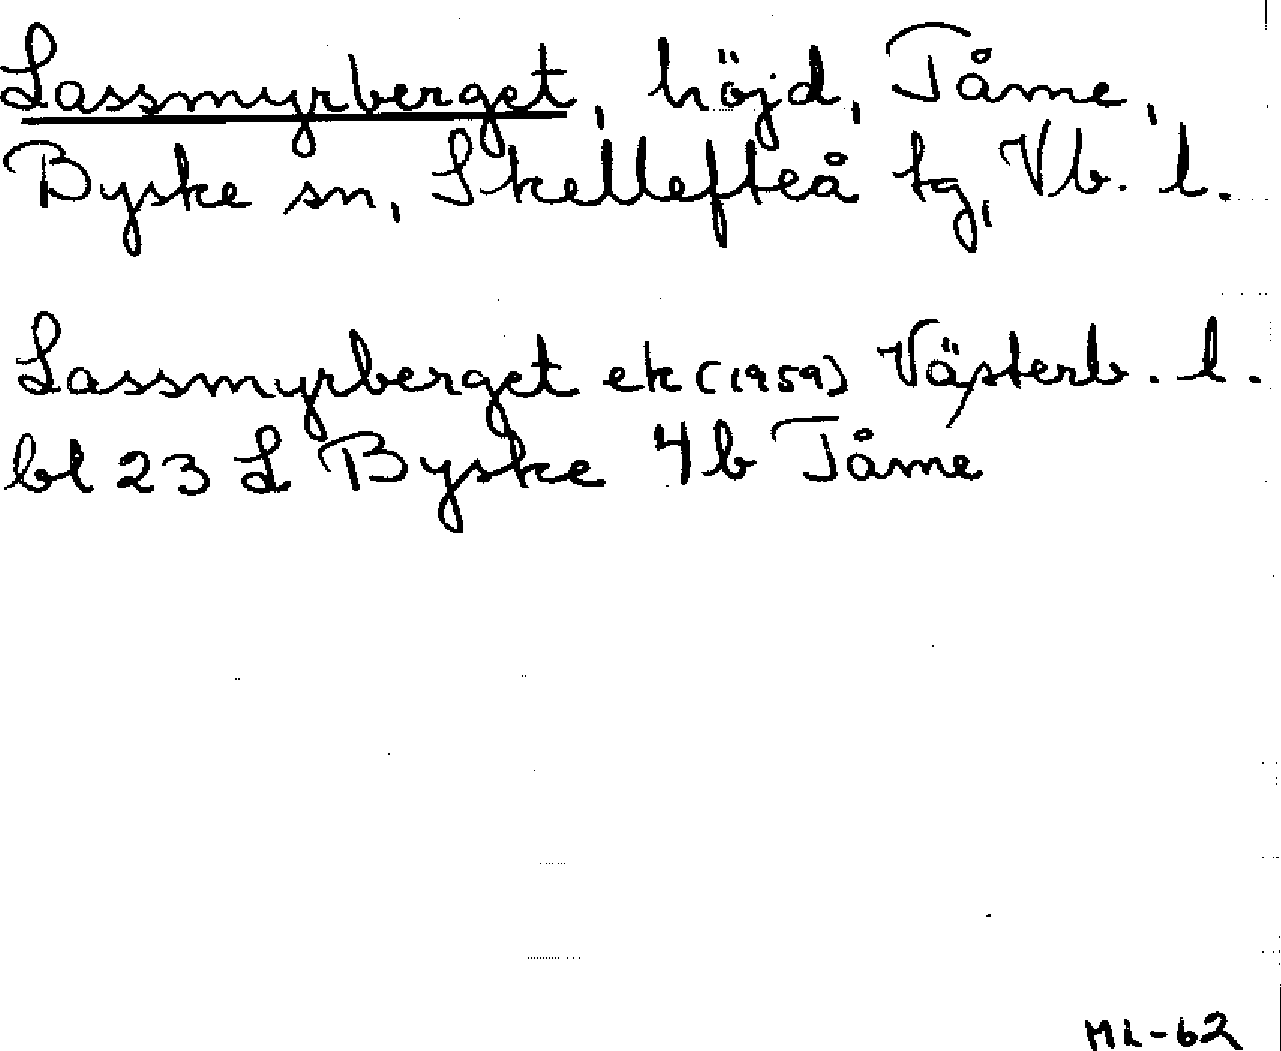 Lassmyrberget, höjd, Tåme,
Byske sn, Skellefteå tg, Vb. l.
Lassmyrberget ek (1959) Västerb. l.
bl 23 L Byske 4b Tåme
ML-62